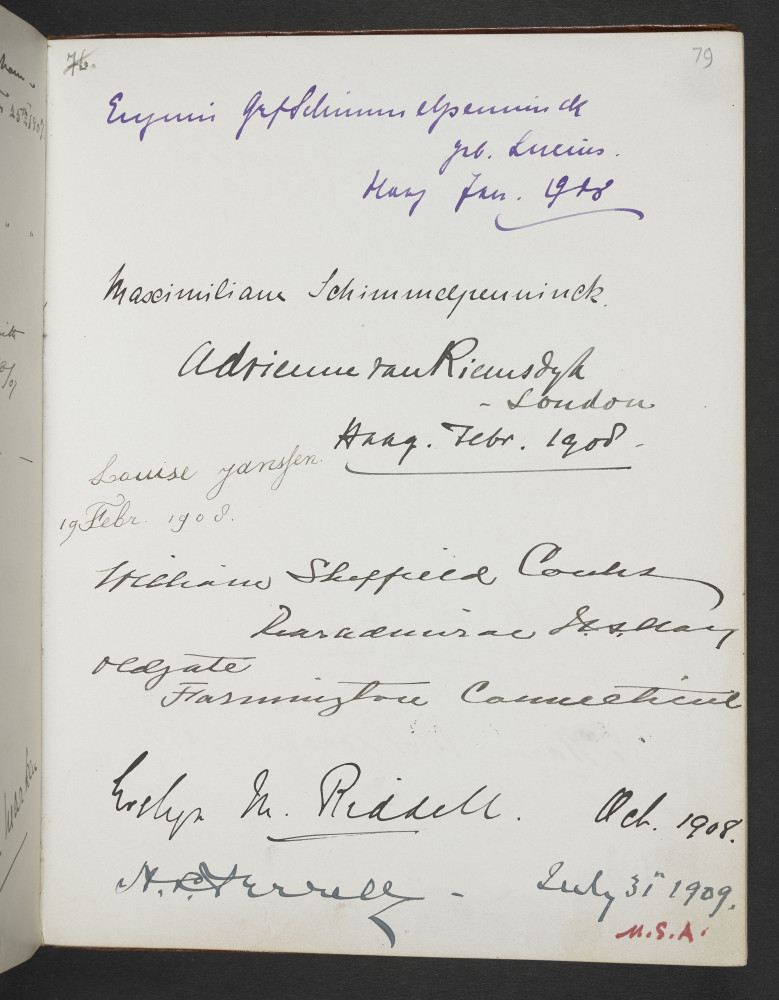 76.
79
Eugenie Grf Schimmelpenninck
geb. Lucius.
Haag Jan. 1908
Maximiliane Schimmelpenninck.
Adrienne van Riemsdyk
- London
Haag. Febr. 1908.
Louise Janssen.
19 Febr. 1908.
William Sheffield Cowles
Rearadmiral U.S. Navy
oldgate
Farmington Connecticut
Evelyn M. Riddell. Oct. 1908.
July 31st 1909.
U.S.A.